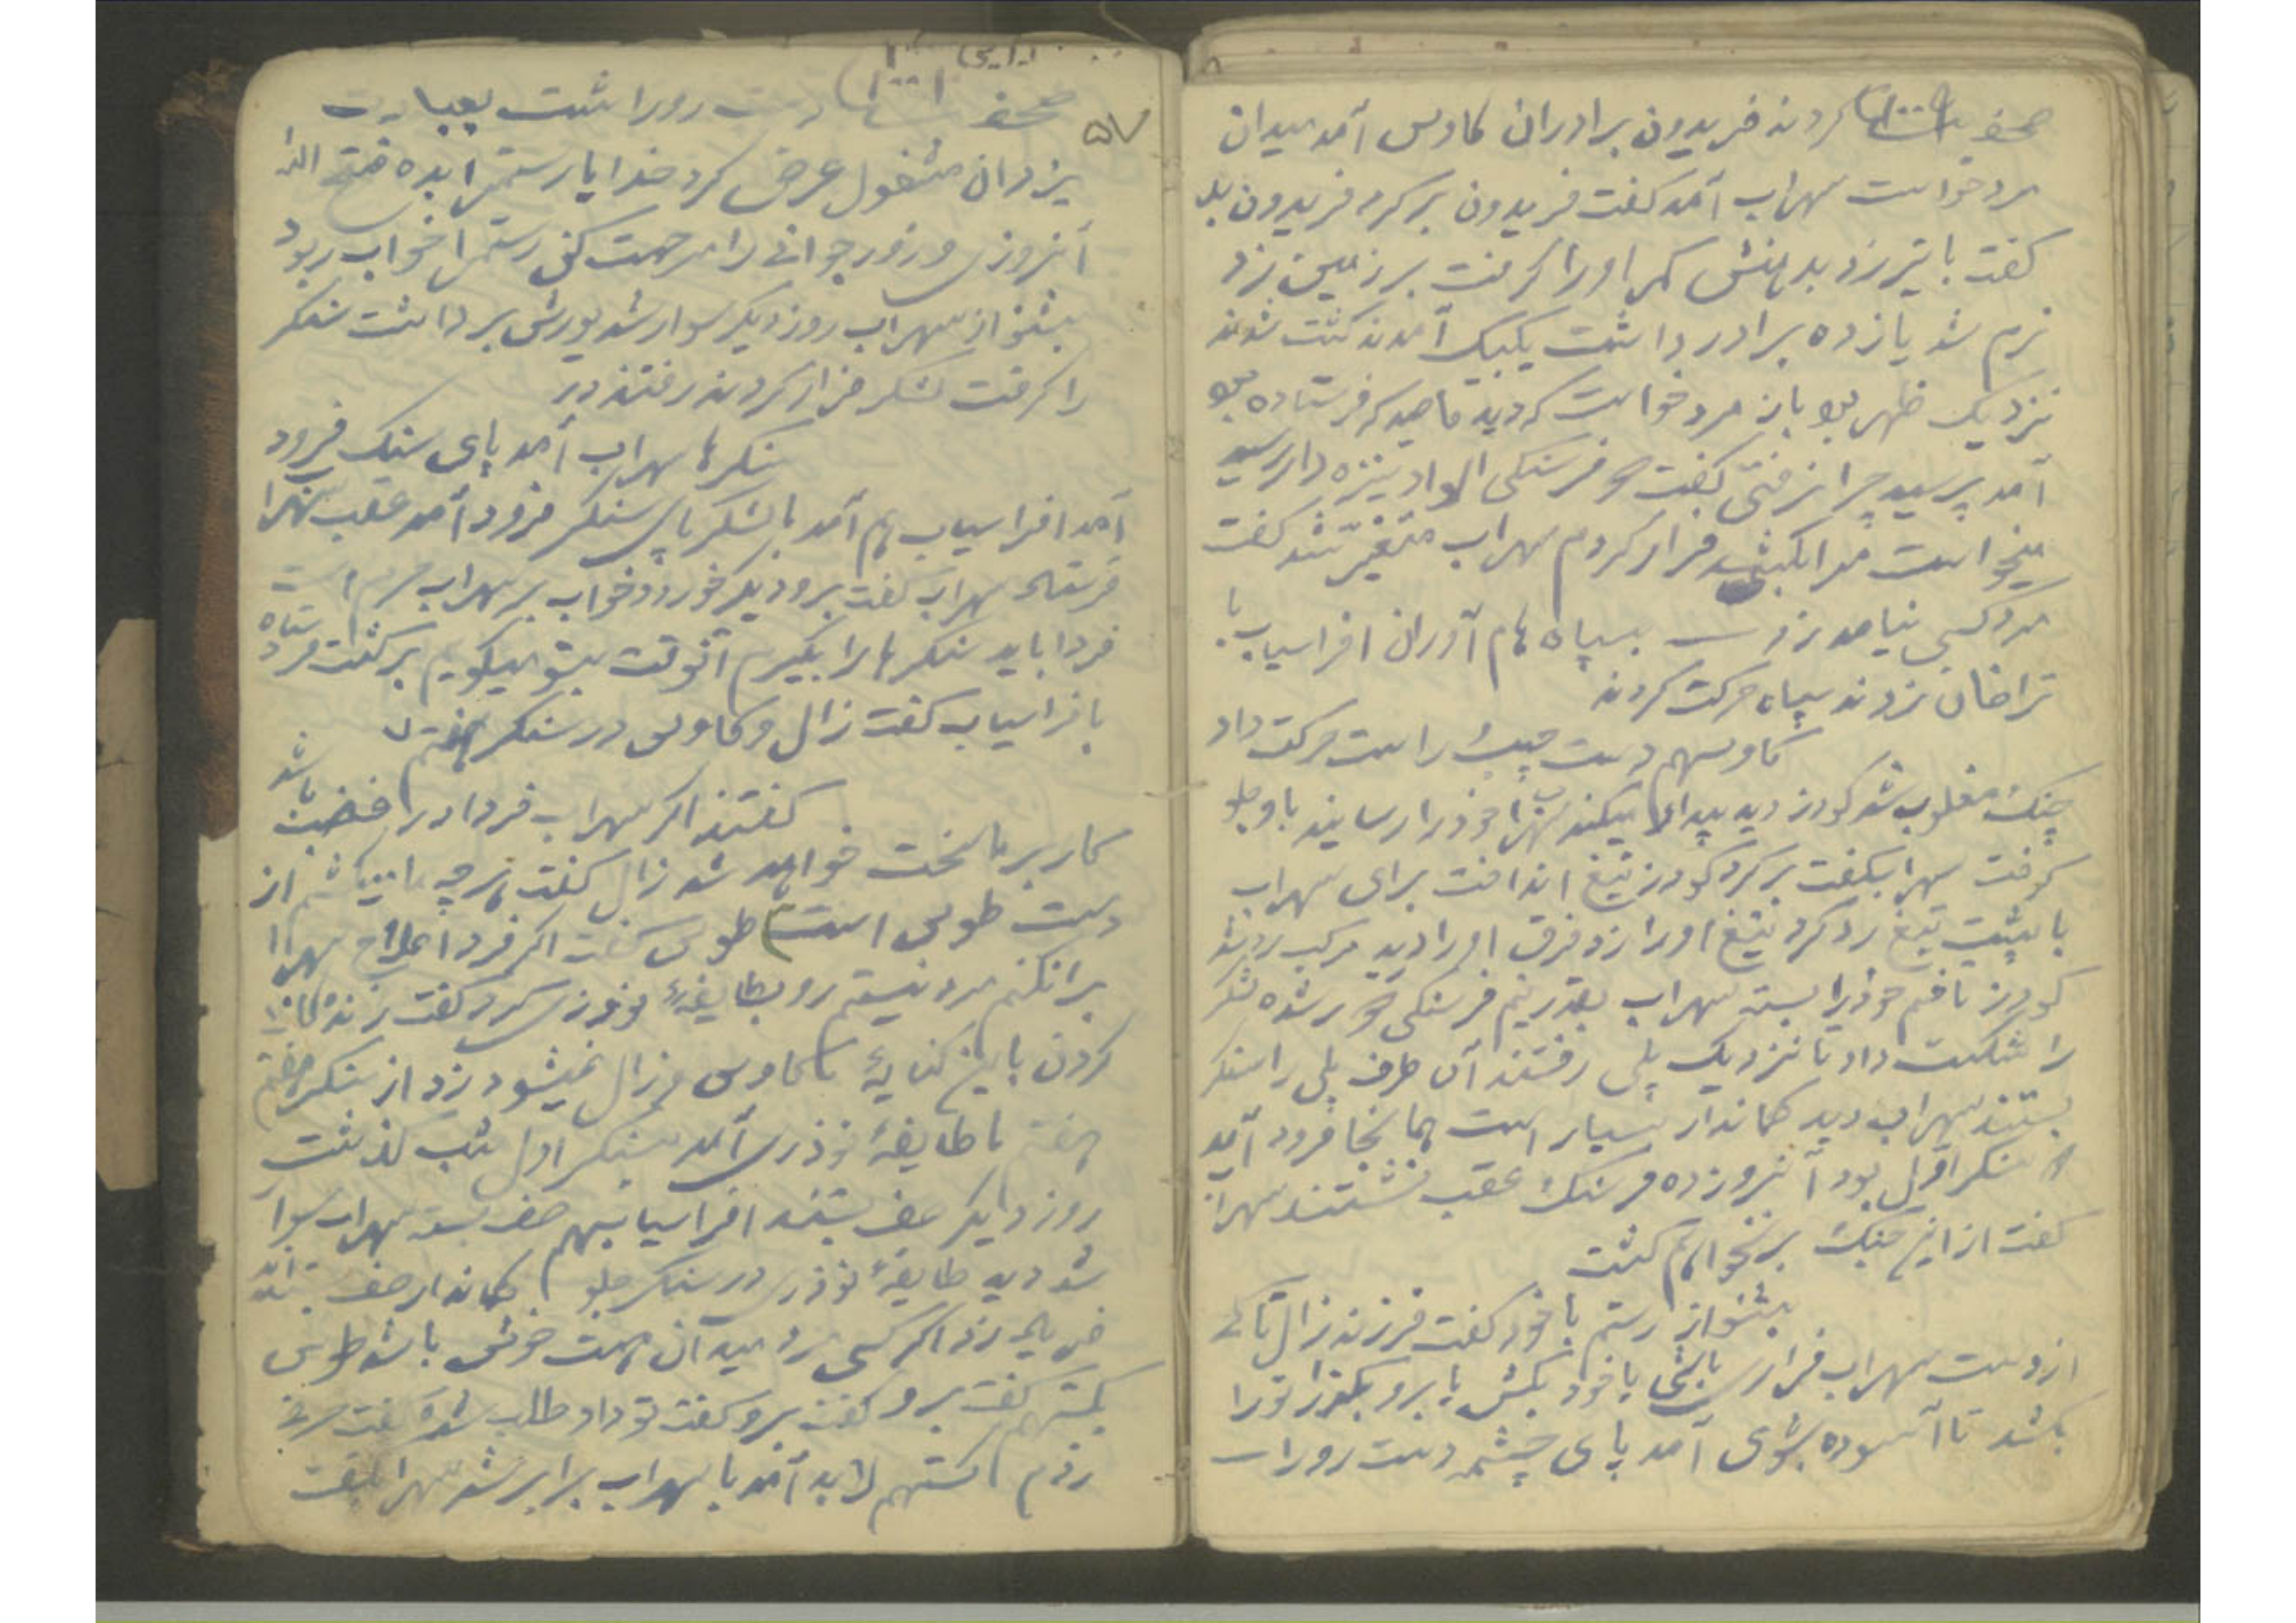 صحفه کردند فریدون برادران کاوس آمد میدان
مرد خواست سهراب آمد گفت فریدون برگرد فریدون بله
گفت با تیر زد بدهنش کمر اورا گرفت بر زمین زد
نرم شد یازده برادر داشت یکیک آمدند کشت شدند
نزدیک ظهر بود باز مرد خواست که دید قاصد که فرستاده بود
آمد پرسید چرا نرفتی گفت فرسنگی نیزه دار رسید
میخواست مرا بکشد فرار کردم سهراب متغیر شد گفت
مرد کسی نیامد زد بسپاه هام آوران افراسیاب با
تراخان زدند سپاه حرکت کردند
کاوسهم دست چپ راست حرکت داد
جنگ مغلوب شد گودرز دید میکند خودرا رسانید باو جلو
گرفت سهراب گفت برگرد گودرز تیغ انداخت برای سهراب
با پشت تیغ رد کرد تیغ اورا زد فرق اورا درید مرکب رد شد
گودرز زخم خودرا بسته سهراب بقدر نیم فرسنگی دور شده لشکر
را شکست داد تا نزدیک پلی رفتند آن طرف پلی را سنگر
بستند سهراب دید کماندار بسیار است همانجا فرود آمد
سنگر اول بود آنروز ده فرسنگ عقب نشستند سهراب
گفت از این جنگ بر نخواهم گشت
بشنو از رستم با خود گفت فرزند زال تا کی
از دست سهراب فرار باشی یا خود بکش یا برو بگذار تورا
بکشد تا آسوده بشوی آمد پای چشمه دست رو را
۵۷
صحفه دست رورا شست بعبادت
یزدان مشغول عرض کرد خدایا رستمرا بده
آنروزی و زور جوانی را مرحمت کنی رستمرا خواب ربود
بشنو از سهراب روز دیگر سوار شد یورش برداشت سنگر
را گرفت لشکر فرار کردند رفتند در
سنگرها سهراب آمد پای سنگ فرود
آمد افراسیاب هم آمد با لشکر پای سنگر فرود آمد عقب سهراب
فرستاد سهراب گفت برو دیگر خورد و خواب بر سهراب حرام است
فردا باید سنگرها را بگیرم آنوقت بتو میگویم برگشت فرستاده
بافراسیاب گفت زال و کاوس در سنگر هفتم
گفتند اگر سهراب فردا در باشد
کار بر ما سخت خواهد شد زال گفت هر چه میکشم از
دست طوس است طوس گفت اگر فردا علاج سهراب را
نکنم مرد نیستم رو بطایفهٔ نوذری کرد گفت زندگانی
کردن با این کنایهٔ کاوس و زال نمیشود زد از سنگر هفتم
با طایفهٔ نوذری آمد سنگر اول شب گذشت
روز دیگر صف بستند افراسیابهم صف بست سهراب سوار
شد دید طایفهٔ نوذری در سنگر جلو کماندار صف بسته اند
زد اگر کسی مرد میدان هست خوش باشد طوس
بگستهم گفت برو گفت برو گفت تو داوطلب شدی گفت
رزم گستهم لابد آمد با سهراب برابر شد سهراب گفت